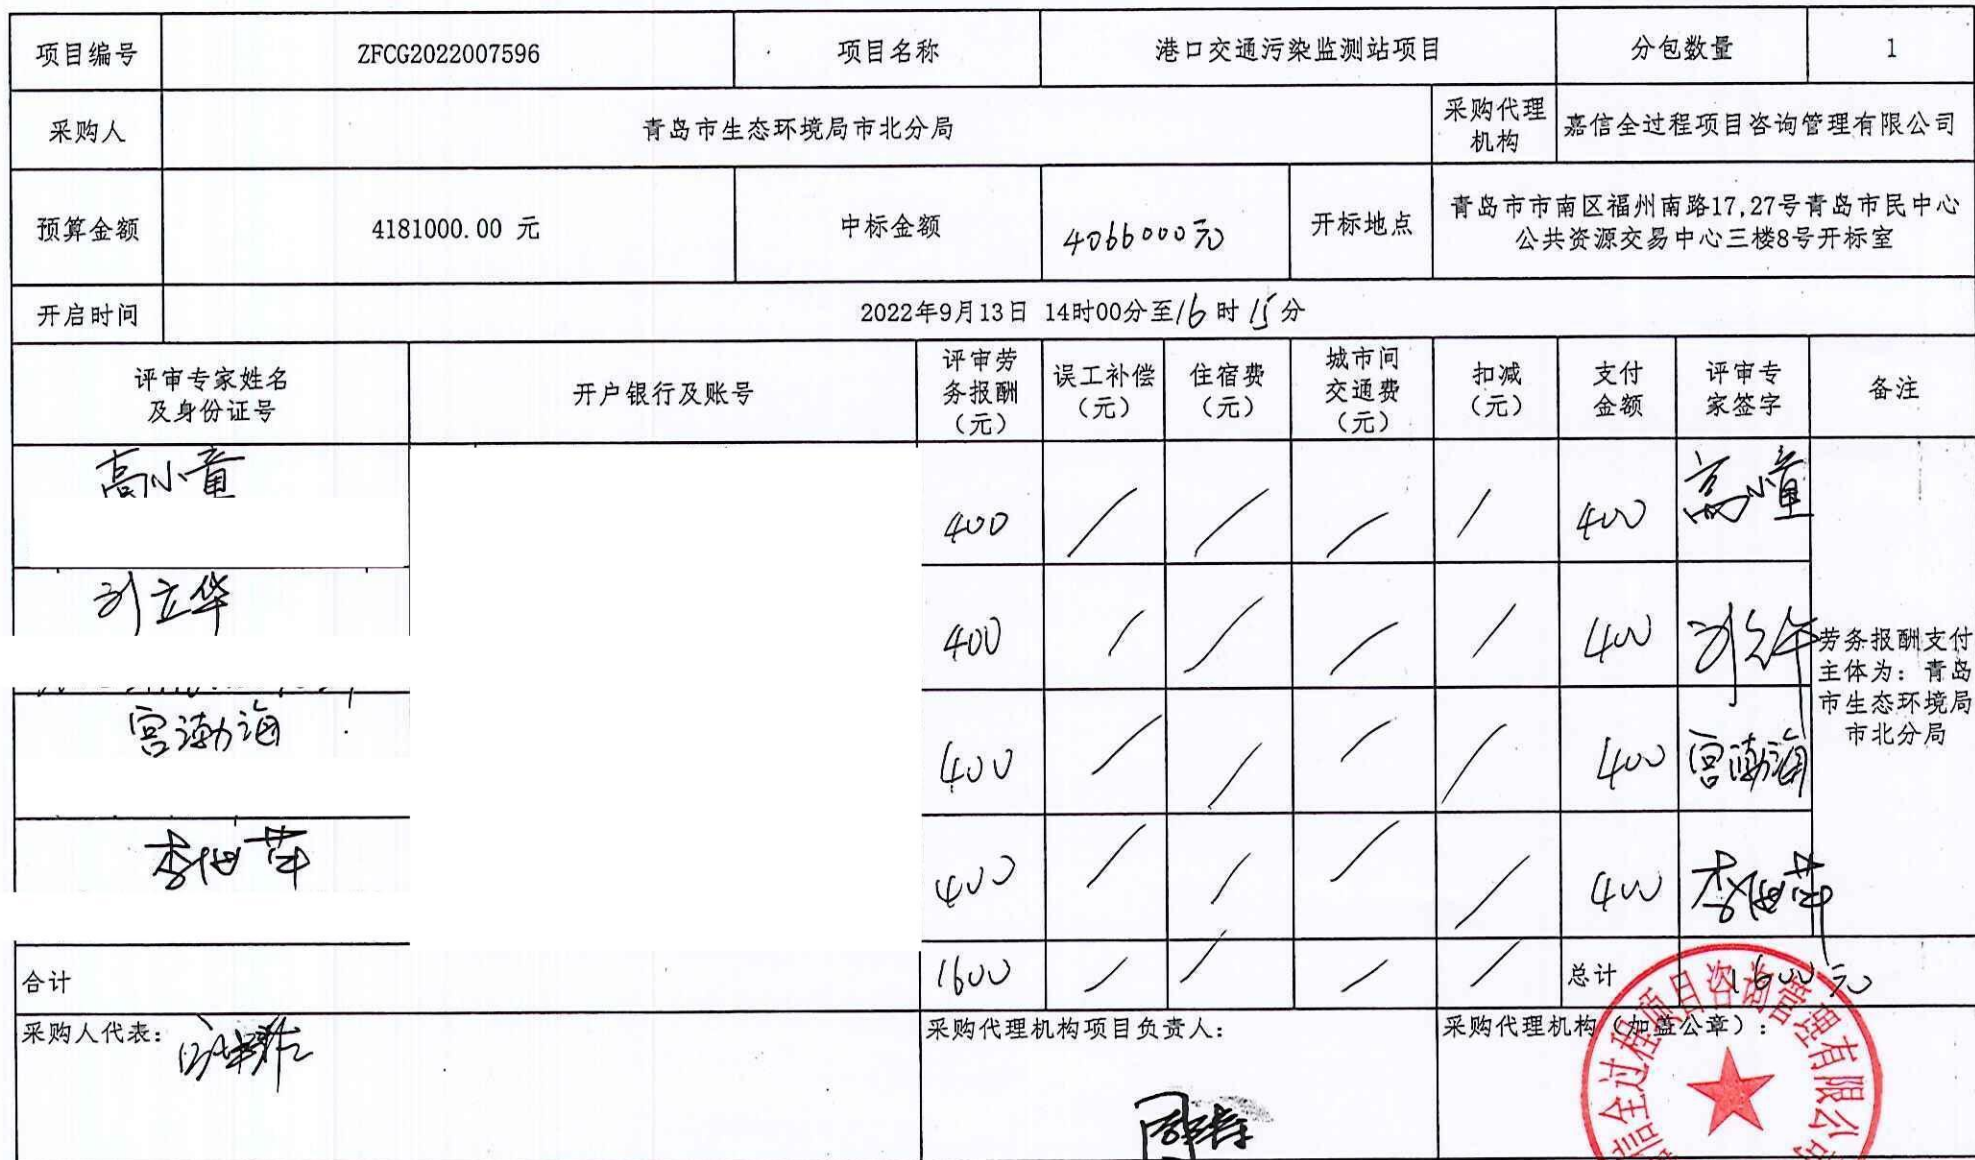 项目编号 ZFCG2022007596 项目名称 港口交通污染监测站项目 分包数量 1
采购人 青岛市生态环境局市北分局 采购代理
机构 嘉信全过程项目咨询管理有限公司
预算金额 4181000.00 元 中标金额 4066000元 开标地点 青岛市市南区福州南路17,27号青岛市民中心
公共资源交易中心三楼8号开标室
开启时间 2022年9月13日 14时00分至16时15分
评审专家姓名
及身份证号
开户银行及账号
评审劳
务报酬
（元）
误工补偿
（元）
住宿费
（元）
城市间
交通费
（元）
扣减
（元）
支付
金额
评审专
家签字
备注
高小童 400 / / / / 400 高小童
刘立华 400 / / / / 400 刘立华
宫渤海 400 / / / / 400 宫渤海
李伟萍 400 / / / / 400 李伟萍
劳务报酬支付
主体为：青岛
市生态环境局
市北分局
合计 1600 / / / / 总计 1600元
采购人代表：
采购代理机构项目负责人：
采购代理机构（加盖公章）：
信全过程项目咨询管理有限公司